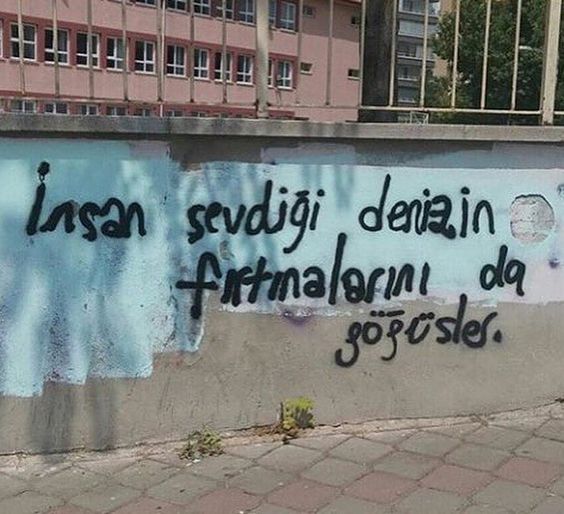 İnsan sevdiği denizin
fırtınalarını da
göğüsler.